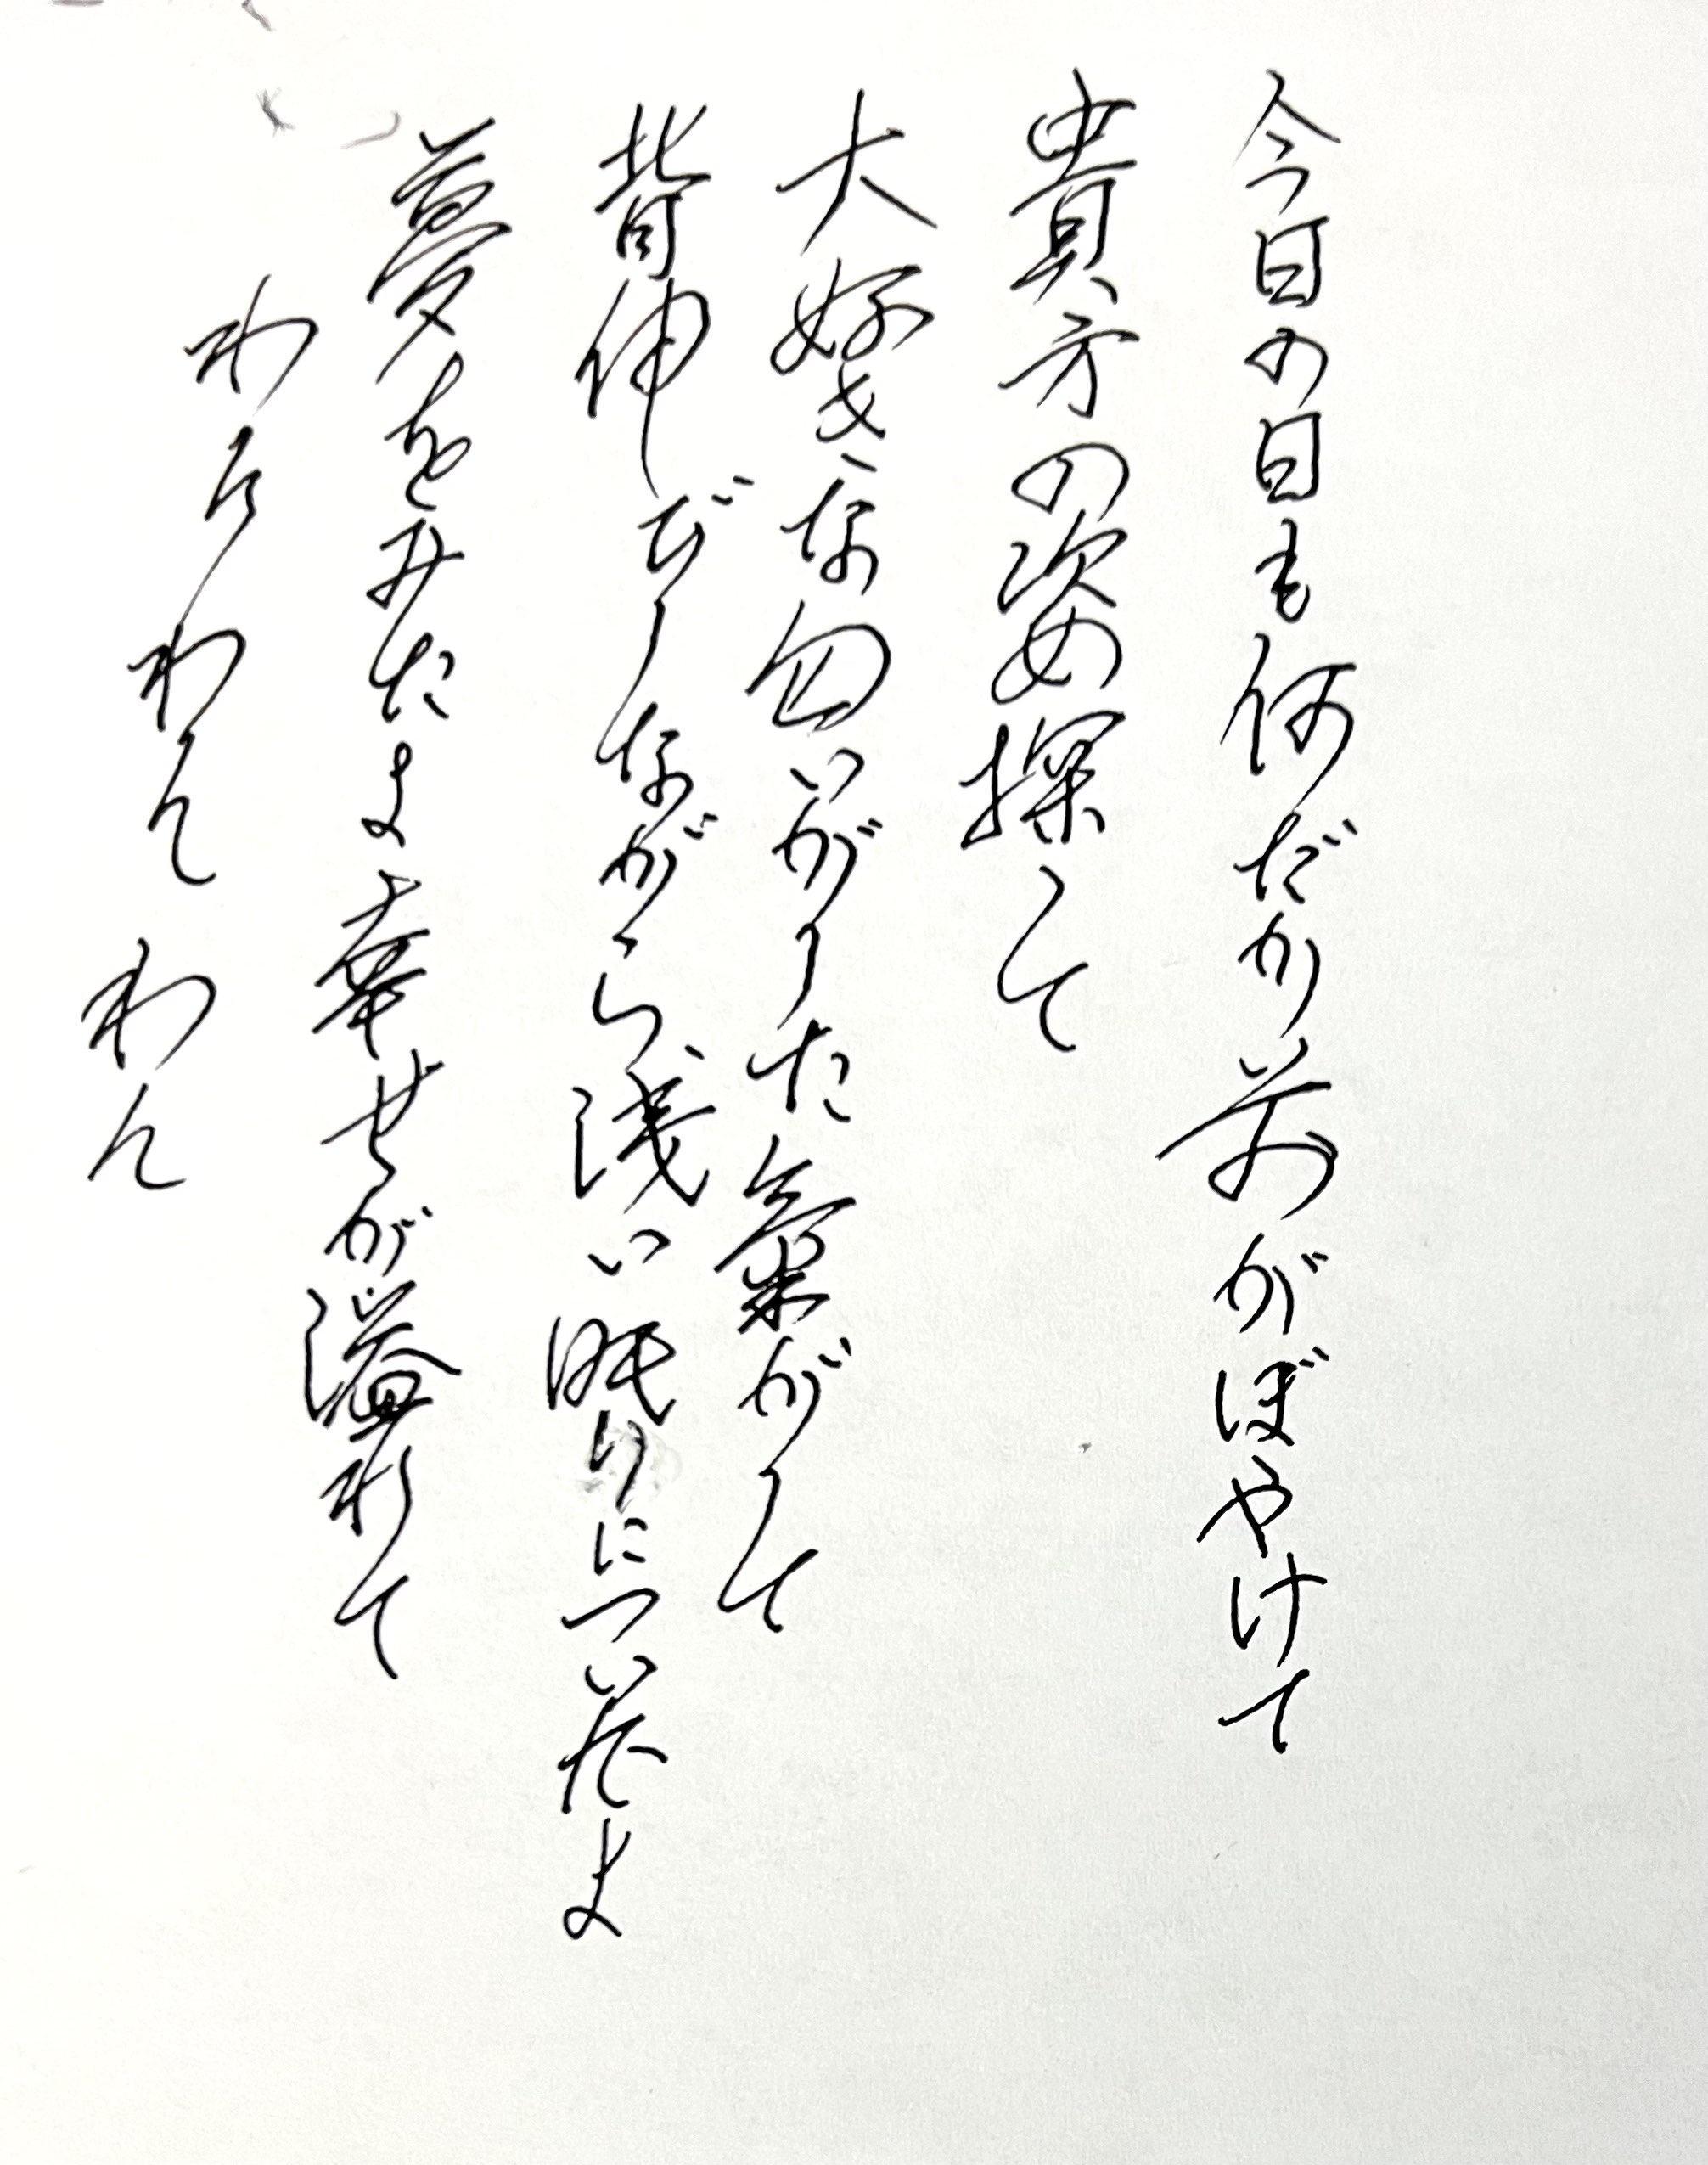 今日の日も何だか前がぼやけて
貴方の姿探して
大好きな匂いがした氣がして
背伸びしながら浅い眠りについたよ
夢をみたよ幸せが溢れて
わんわんわん